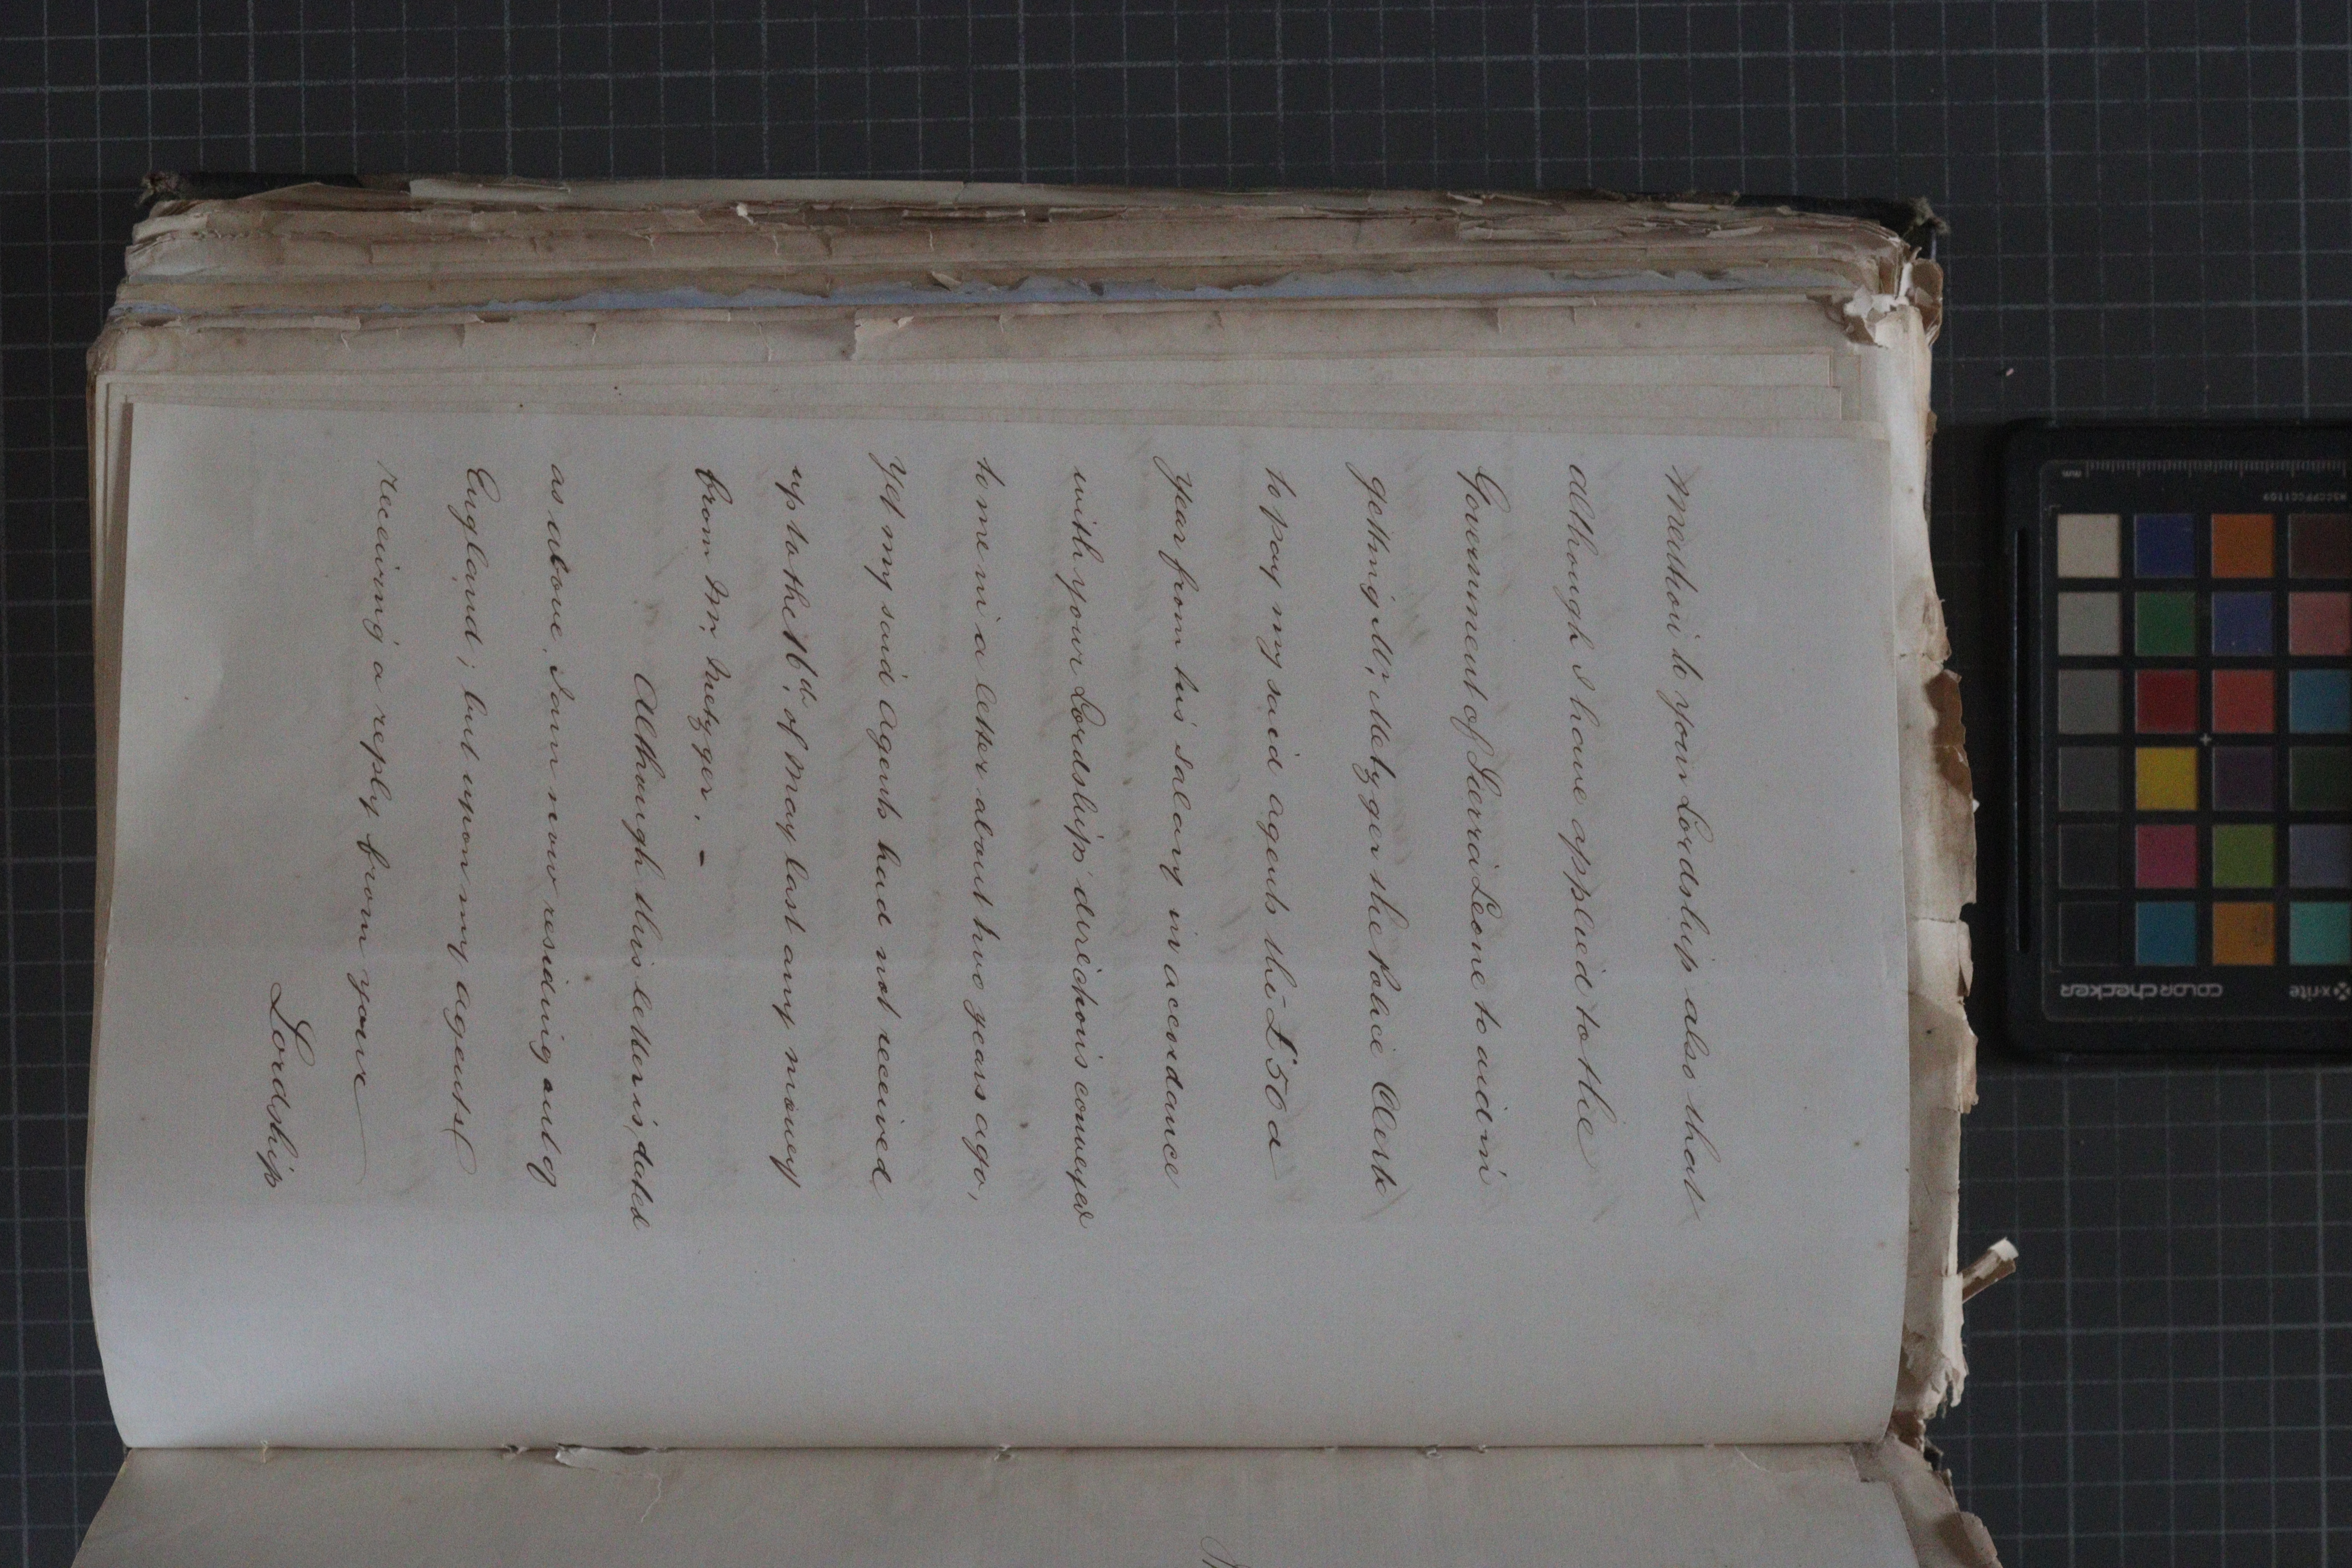 mention to your Lordship also that
although I have applied to the
Government of Sierra Leone to aid in
getting Mr. Metzger the Police Clerk
to pay my said agents the £50 a
year from his salary in accordance
with your Lordship' directions conveyed
to me in a letter about two years ago,
yet my said agents had not received
up to the 16th. of May last any money
from Mr. Metzger. -
Although this letter is, dated
as above, I am now residing out of
England; but upon my agents
receiving a reply from your
Lordship
x-rite
colorchecker